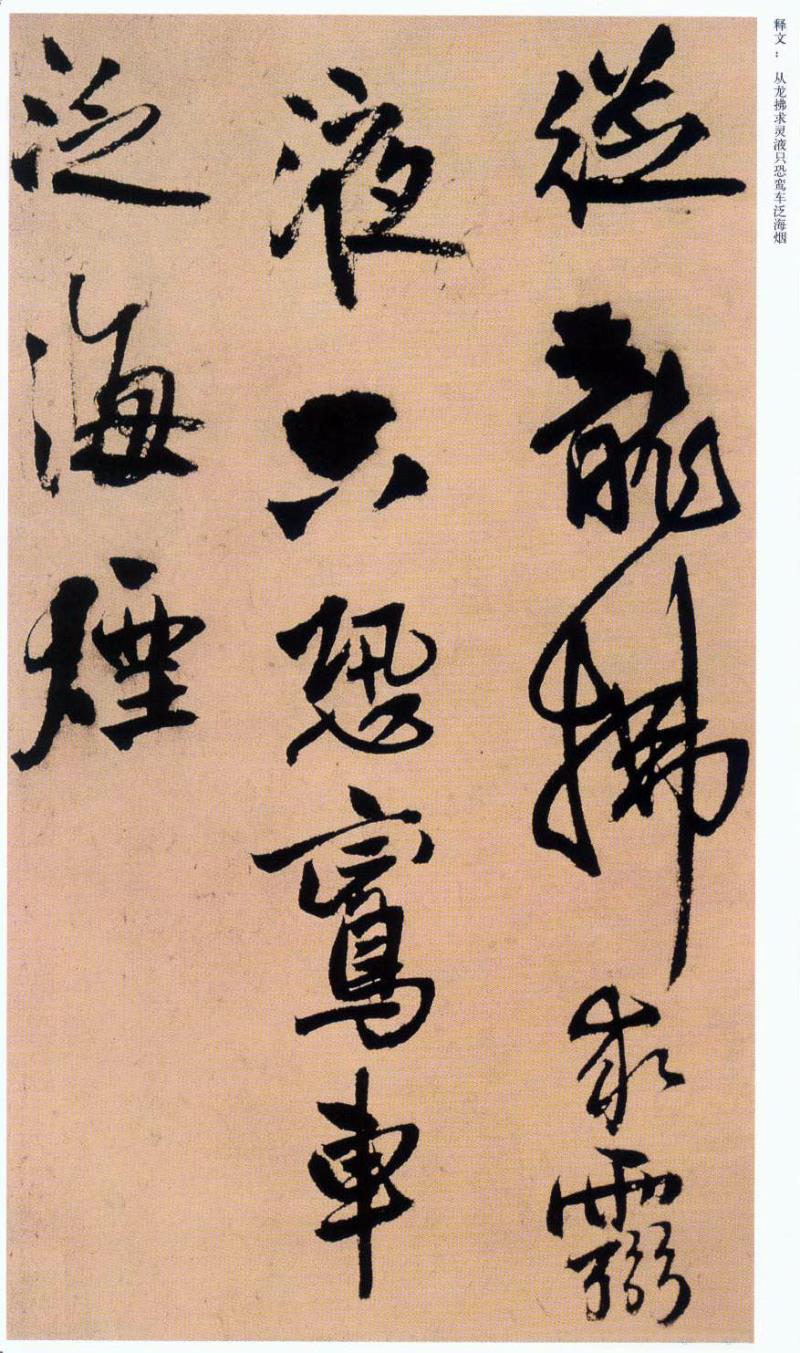 释文： 从龙拂求灵液只恐鸾车泛海烟
從龍拂求靈
液只恐鸞車
泛海煙